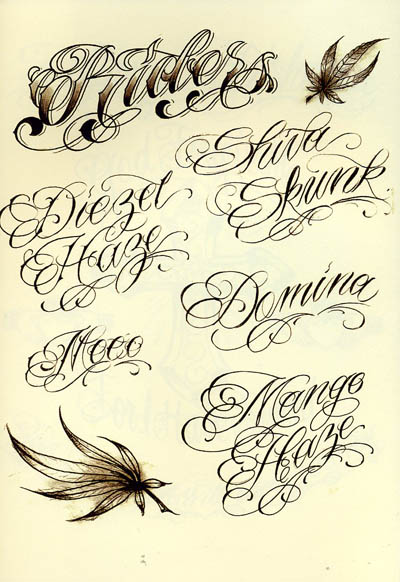 Riders
Shiva
Skunk
Diezel
Haze
Domina
Moco
Mango
Haze